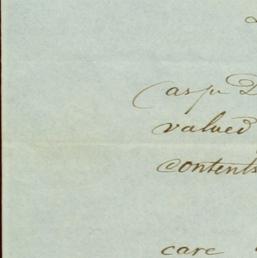 (as pr D
valued
contents
care